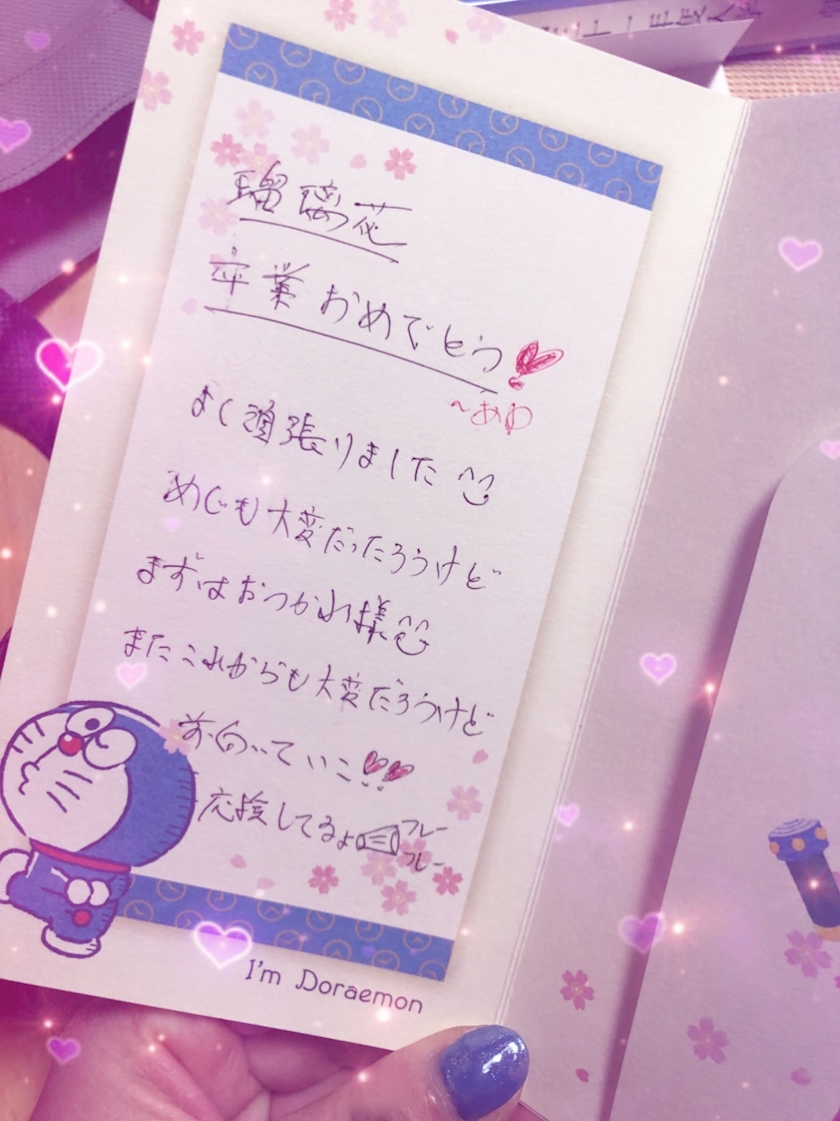 瑠璃花
卒業おめでとう
よく頑張りました
めじも大変だったろうけど
まずはおつかれ様
またこれからも大変だろうけど
前向いていこ!!
応援してるよ
フレー
フレー
I'm Doraemon